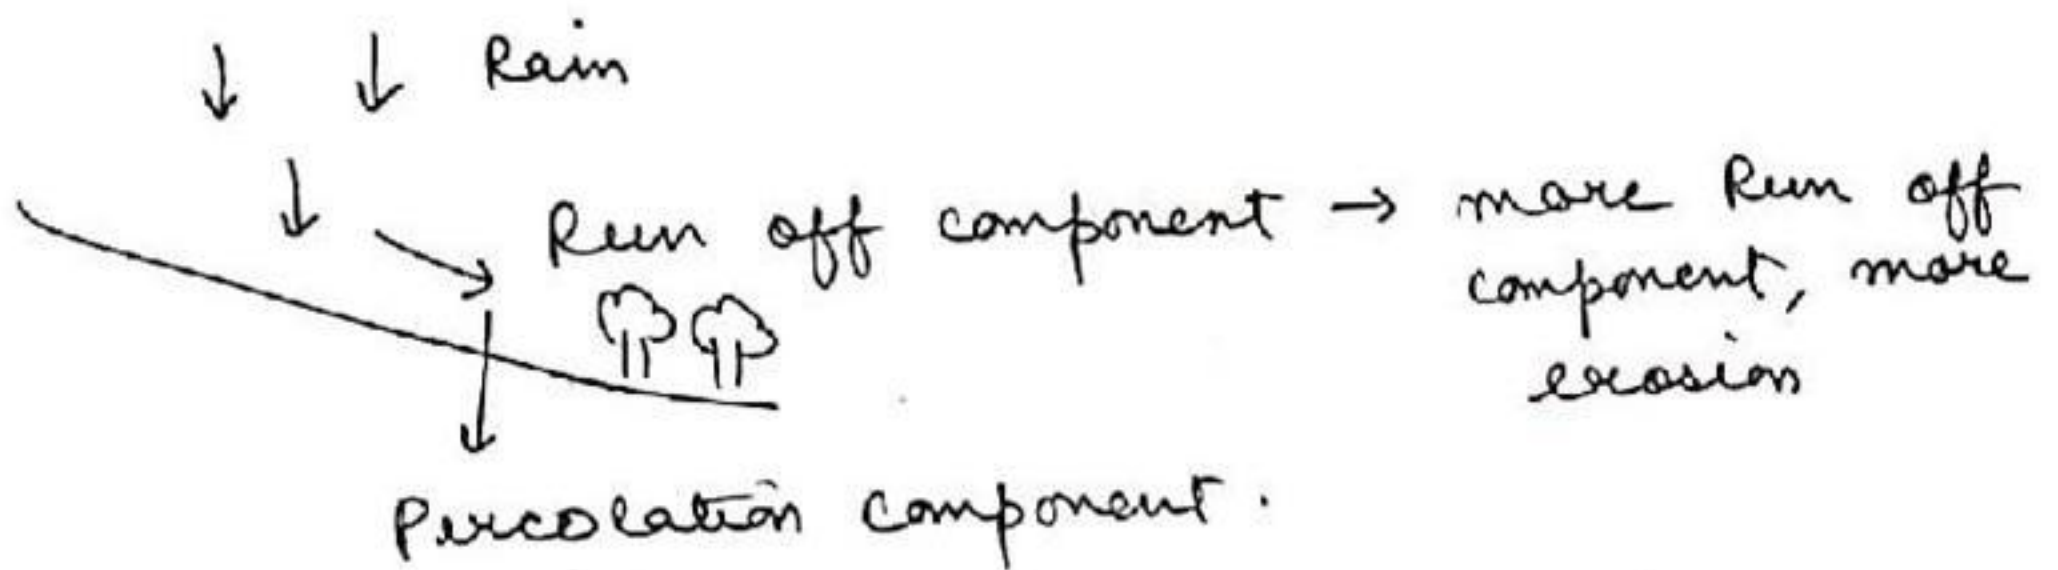 Rain
Run off component → more Run off
component, more
erosion
Percolation component.